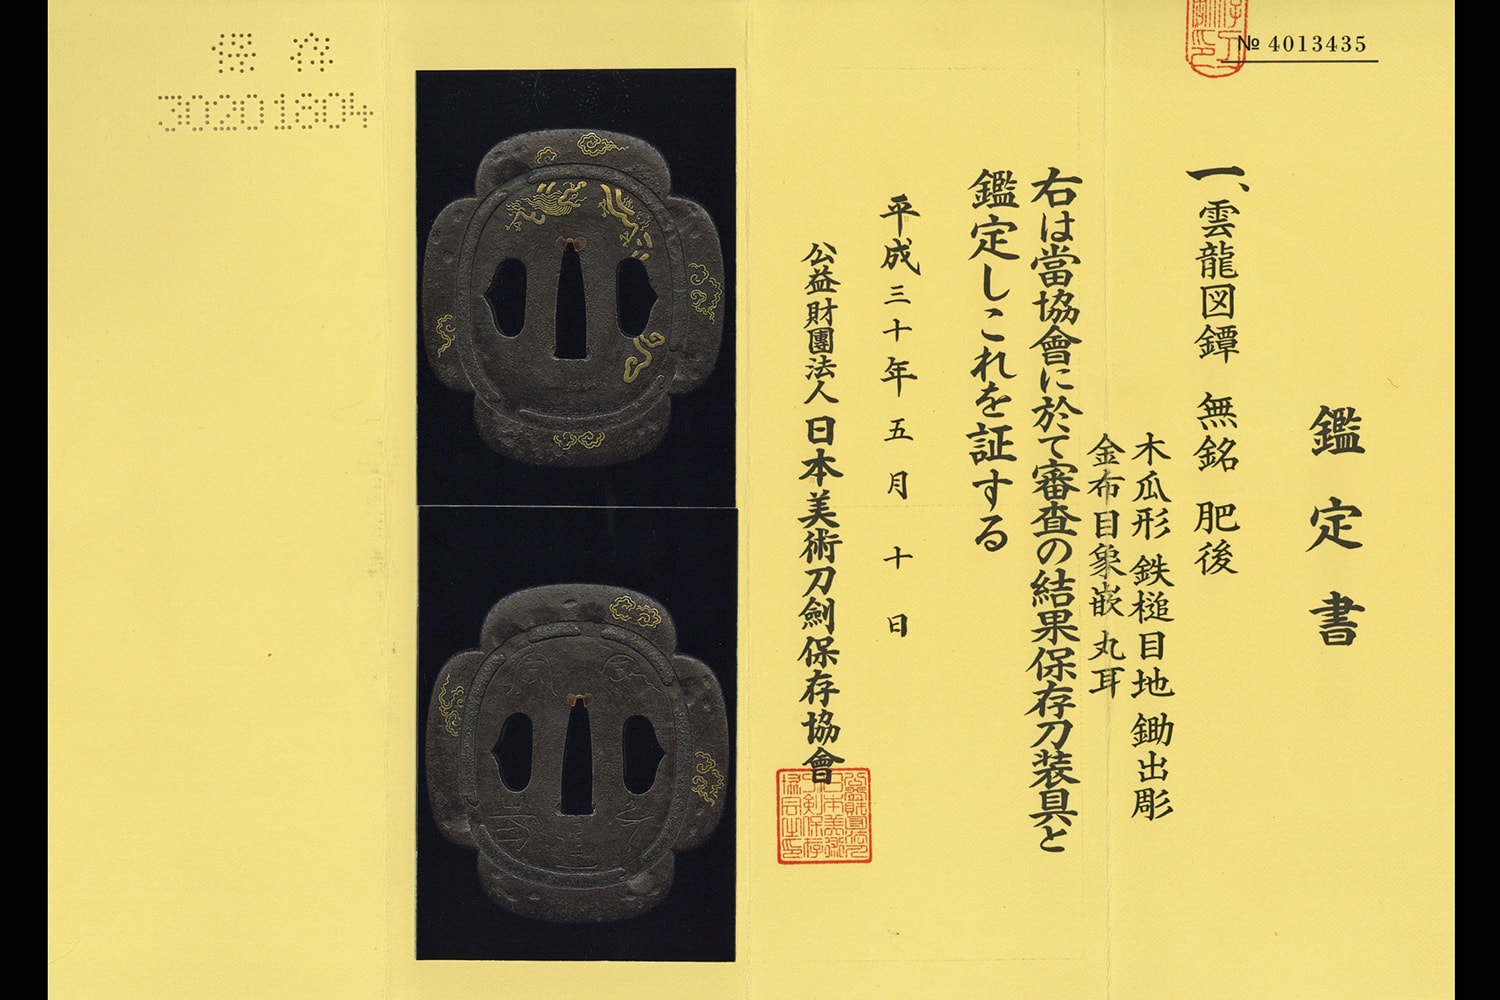 № 4013435
鑑定書
一、雲龍図鐔 無銘 肥後
木瓜形 鉄槌目地 鋤出彫
金布目象嵌 丸耳
右は當協會に於て審査の結果保存刀装具と
鑑定しこれを証する
平成三十年五月十日
公益財團法人 日本美術刀劍保存協會
保存
30201804